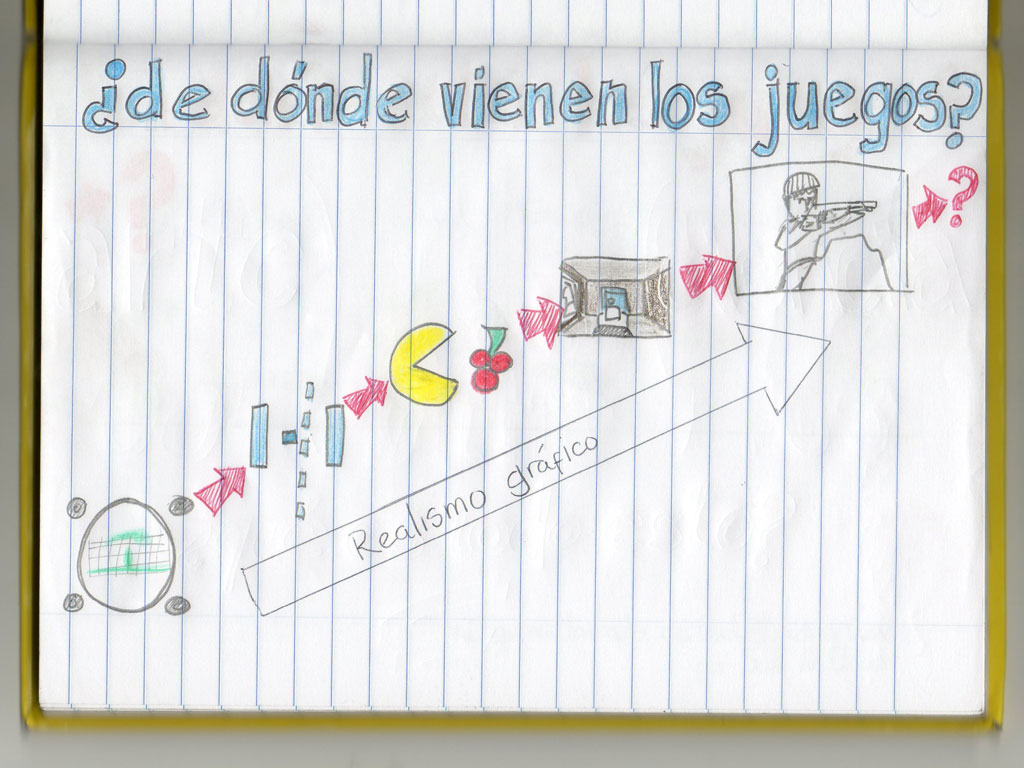 ¿de dónde vienen los juegos?
?
Realismo gráfico